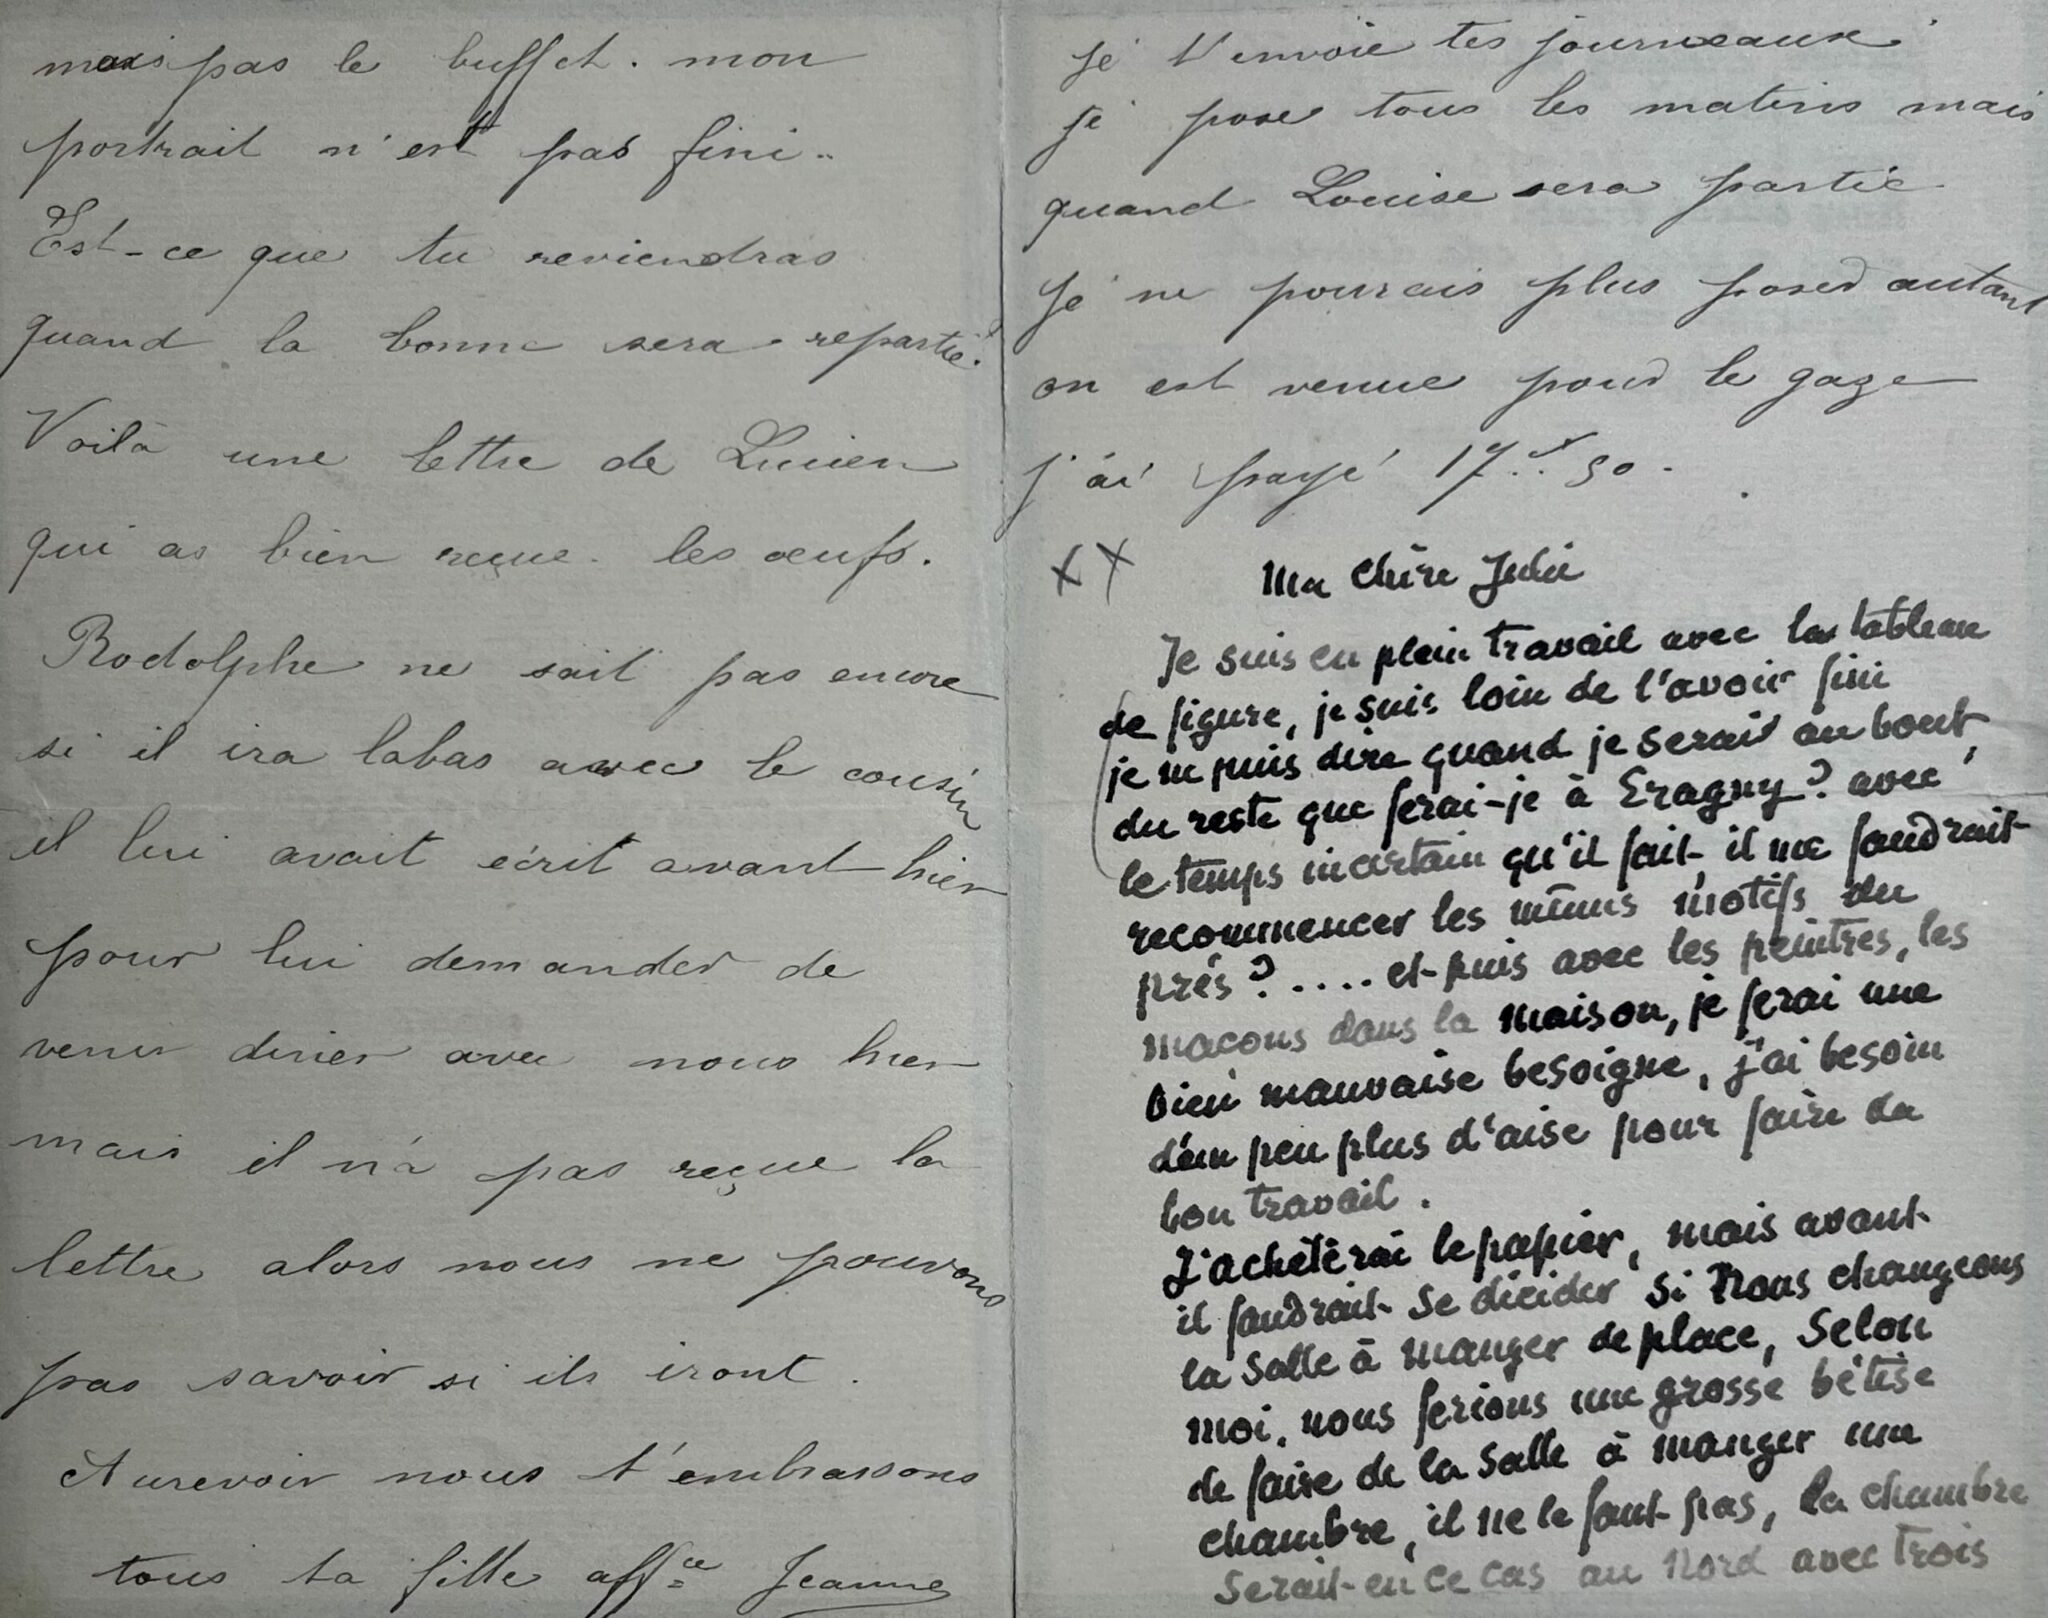 mais pas le buffet. mon
portrait n'est pas fini..
Est-ce que tu reviendras
quand la bonne sera repartie?
Voilà une lettre de Lucien
qui as bien reçue les œufs.
Rodolphe ne sait pas encore
si il ira labas avec le cousin
il lui avait écrit avant hier
pour lui demander de
venir diner avec nous hier
mais il n'a pas reçue la
lettre alors nous ne pouvons
pas savoir si ils iront.
Aurevoir nous t'embrassons
tous ta fille affce Jeanne
je t'envoie tes journeaux
je pose tous les matins mais
quand Louise sera partie
je ne pourais plus poser autant
on est venue pour le gaze
j'ai payé 17f.50.
xx Ma chère Julie
Je suis en plein travail avec le tableau
de figure, je suis loin de l'avoir fini
je ne puis dire quand je serai au bout,
du reste que ferai-je à Eragny? avec
le temps incertain qu'il fait, il me faudrait
recommencer les mêmes motifs du
prés?.... et puis avec les peintres, les
macons dans la maison, je ferai une
bien mauvaise besoigne, j'ai besoin
d'un peu plus d'aise pour faire du
bon travail.
J'achèterai le papier, mais avant
il faudrait se décider si nous changeons
la salle à manger de place, selon
moi, nous ferions une grosse bétise
de faire de la salle à manger une
chambre, il ne le faut pas, la chambre
serait en ce cas au Nord avec trois